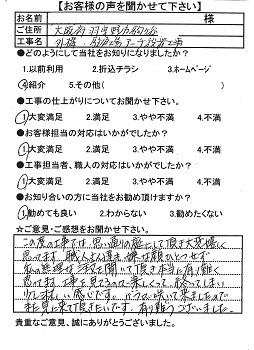 【お客様の声を聞かせて下さい】
お名前 様
ご住所 大阪府羽曳野市
工事名 外構・ 工事
●どのようにして当社をお知りになりましたか?
1.以前利用 2.折込チラシ 3.ホームページ
④紹介 5.その他( )
●工事の仕上がりについてお聞かせ下さい。
①大変満足 2.満足 3.やや不満 4.不満
●お客様担当の対応はいかがでしたか?
①大変満足 2.満足 3.やや不満 4.不満
●工事担当者、職人の対応はいかがでしたか?
①大変満足 2.満足 3.やや不満 4.不満
●お知り合いの方に当社をお勧め頂けますか?
①勧めても良い 2.わからない 3.勧めたくない
☆ご意見・ご感想をお聞かせ下さい。
この度の工事では、思い通りの庭にして頂き大変嬉しく
思ってます。職人さん達も嫌な顔ひとつせず
私の無理な注文を聞いて頂き本当に有り難く
思ってます。工事を見てるのは楽しくって終ってしまい
少し淋しい感じです。バラが咲いて来ましたので
社長見に来て頂きたいです。有り難うございました。
貴重なご意見、誠にありがとうございました。